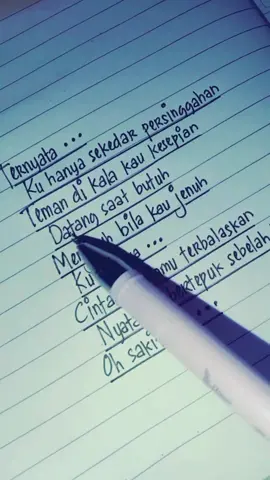 Ternyata ...
Ku hanya sekedar persinggahan
Teman di kala kau kesepian
Datang saat butuh
bila kau jenuh
Ku ...
Cinta terbalaskan
bertepuk sebelah
Oh